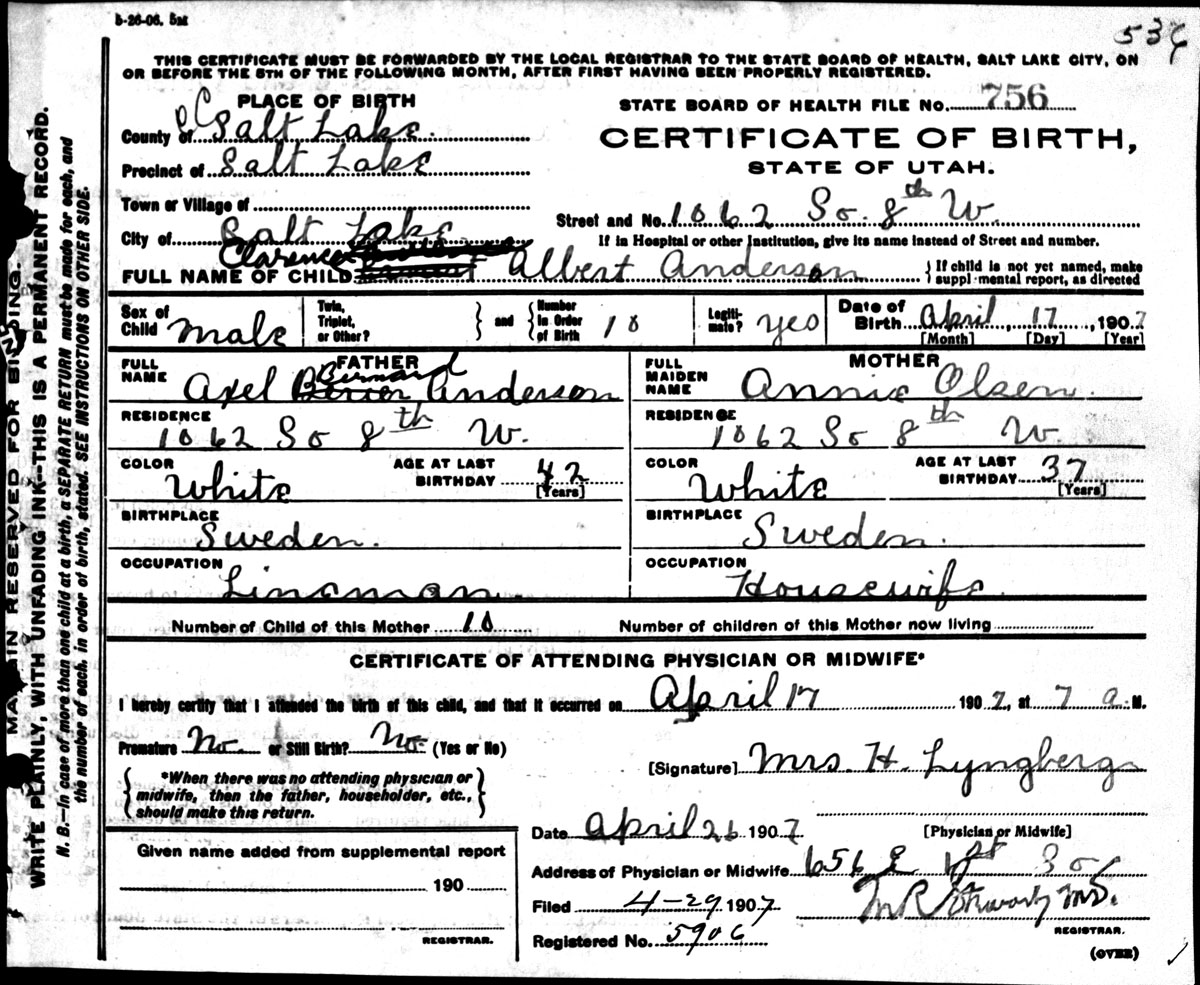 5-26-06. 5M
536
THIS CERTIFICATE MUST BE FORWARDED BY THE LOCAL REGISTRAR TO THE STATE BOARD OF HEALTH, SALT LAKE CITY, ON
OR BEFORE THE 5TH OF THE FOLLOWING MONTH, AFTER FIRST HAVING BEEN PROPERLY REGISTERED.
PLACE OF BIRTH
County of Salt Lake.
Precinct of Salt Lake
Town or Village of
City of Salt Lake.
STATE BOARD OF HEALTH FILE No. 756
CERTIFICATE OF BIRTH,
STATE OF UTAH.
Street and No. 1062 So. 8th W.
If in Hospital or other Institution, give its name instead of Street and number.
FULL NAME OF CHILD Clarence Albert Anderson
If child is not yet named, make
supplemental report, as directed
Sex of Child Male
Twin, Triplet, or Other? and Number in Order of Birth 10
Legitimate? yes
Date of Birth April, 17, 1907
[Month] [Day] [Year]
FATHER
FULL NAME Axel Bernard Anderson
RESIDENCE
1062 So 8th W.
COLOR White AGE AT LAST BIRTHDAY 42 [Years]
BIRTHPLACE
Sweden.
OCCUPATION
Lineman.
MOTHER
FULL MAIDEN NAME Annie Olsen.
RESIDENCE
1062 So 8th W.
COLOR White AGE AT LAST BIRTHDAY 37 [Years]
BIRTHPLACE
Sweden.
OCCUPATION
Housewife.
Number of Child of this Mother 10 Number of children of this Mother now living
CERTIFICATE OF ATTENDING PHYSICIAN OR MIDWIFE*
I hereby certify that I attended the birth of this child, and that it occurred on April 17 1907, at 7 a.M.
Premature No. or Still Birth? No. (Yes or No)
*When there was no attending physician or
midwife, then the father, householder, etc.,
should make this return.
[Signature] Mrs. H. Lyngberg
[Physician or Midwife]
Date April 26 1907
Address of Physician or Midwife 656 E 1st So
Filed 4-29 1907
M.D.
REGISTRAR.
Registered No. 5906
(OVER)
Given name added from supplemental report
190
REGISTRAR.
MARGIN RESERVED FOR BINDING.
WRITE PLAINLY, WITH UNFADING INK--THIS IS A PERMANENT RECORD.
N. B.—In case of more than one child at a birth, a SEPARATE RETURN must be made for each, and
the number of each, in order of birth, stated. SEE INSTRUCTIONS ON OTHER SIDE.